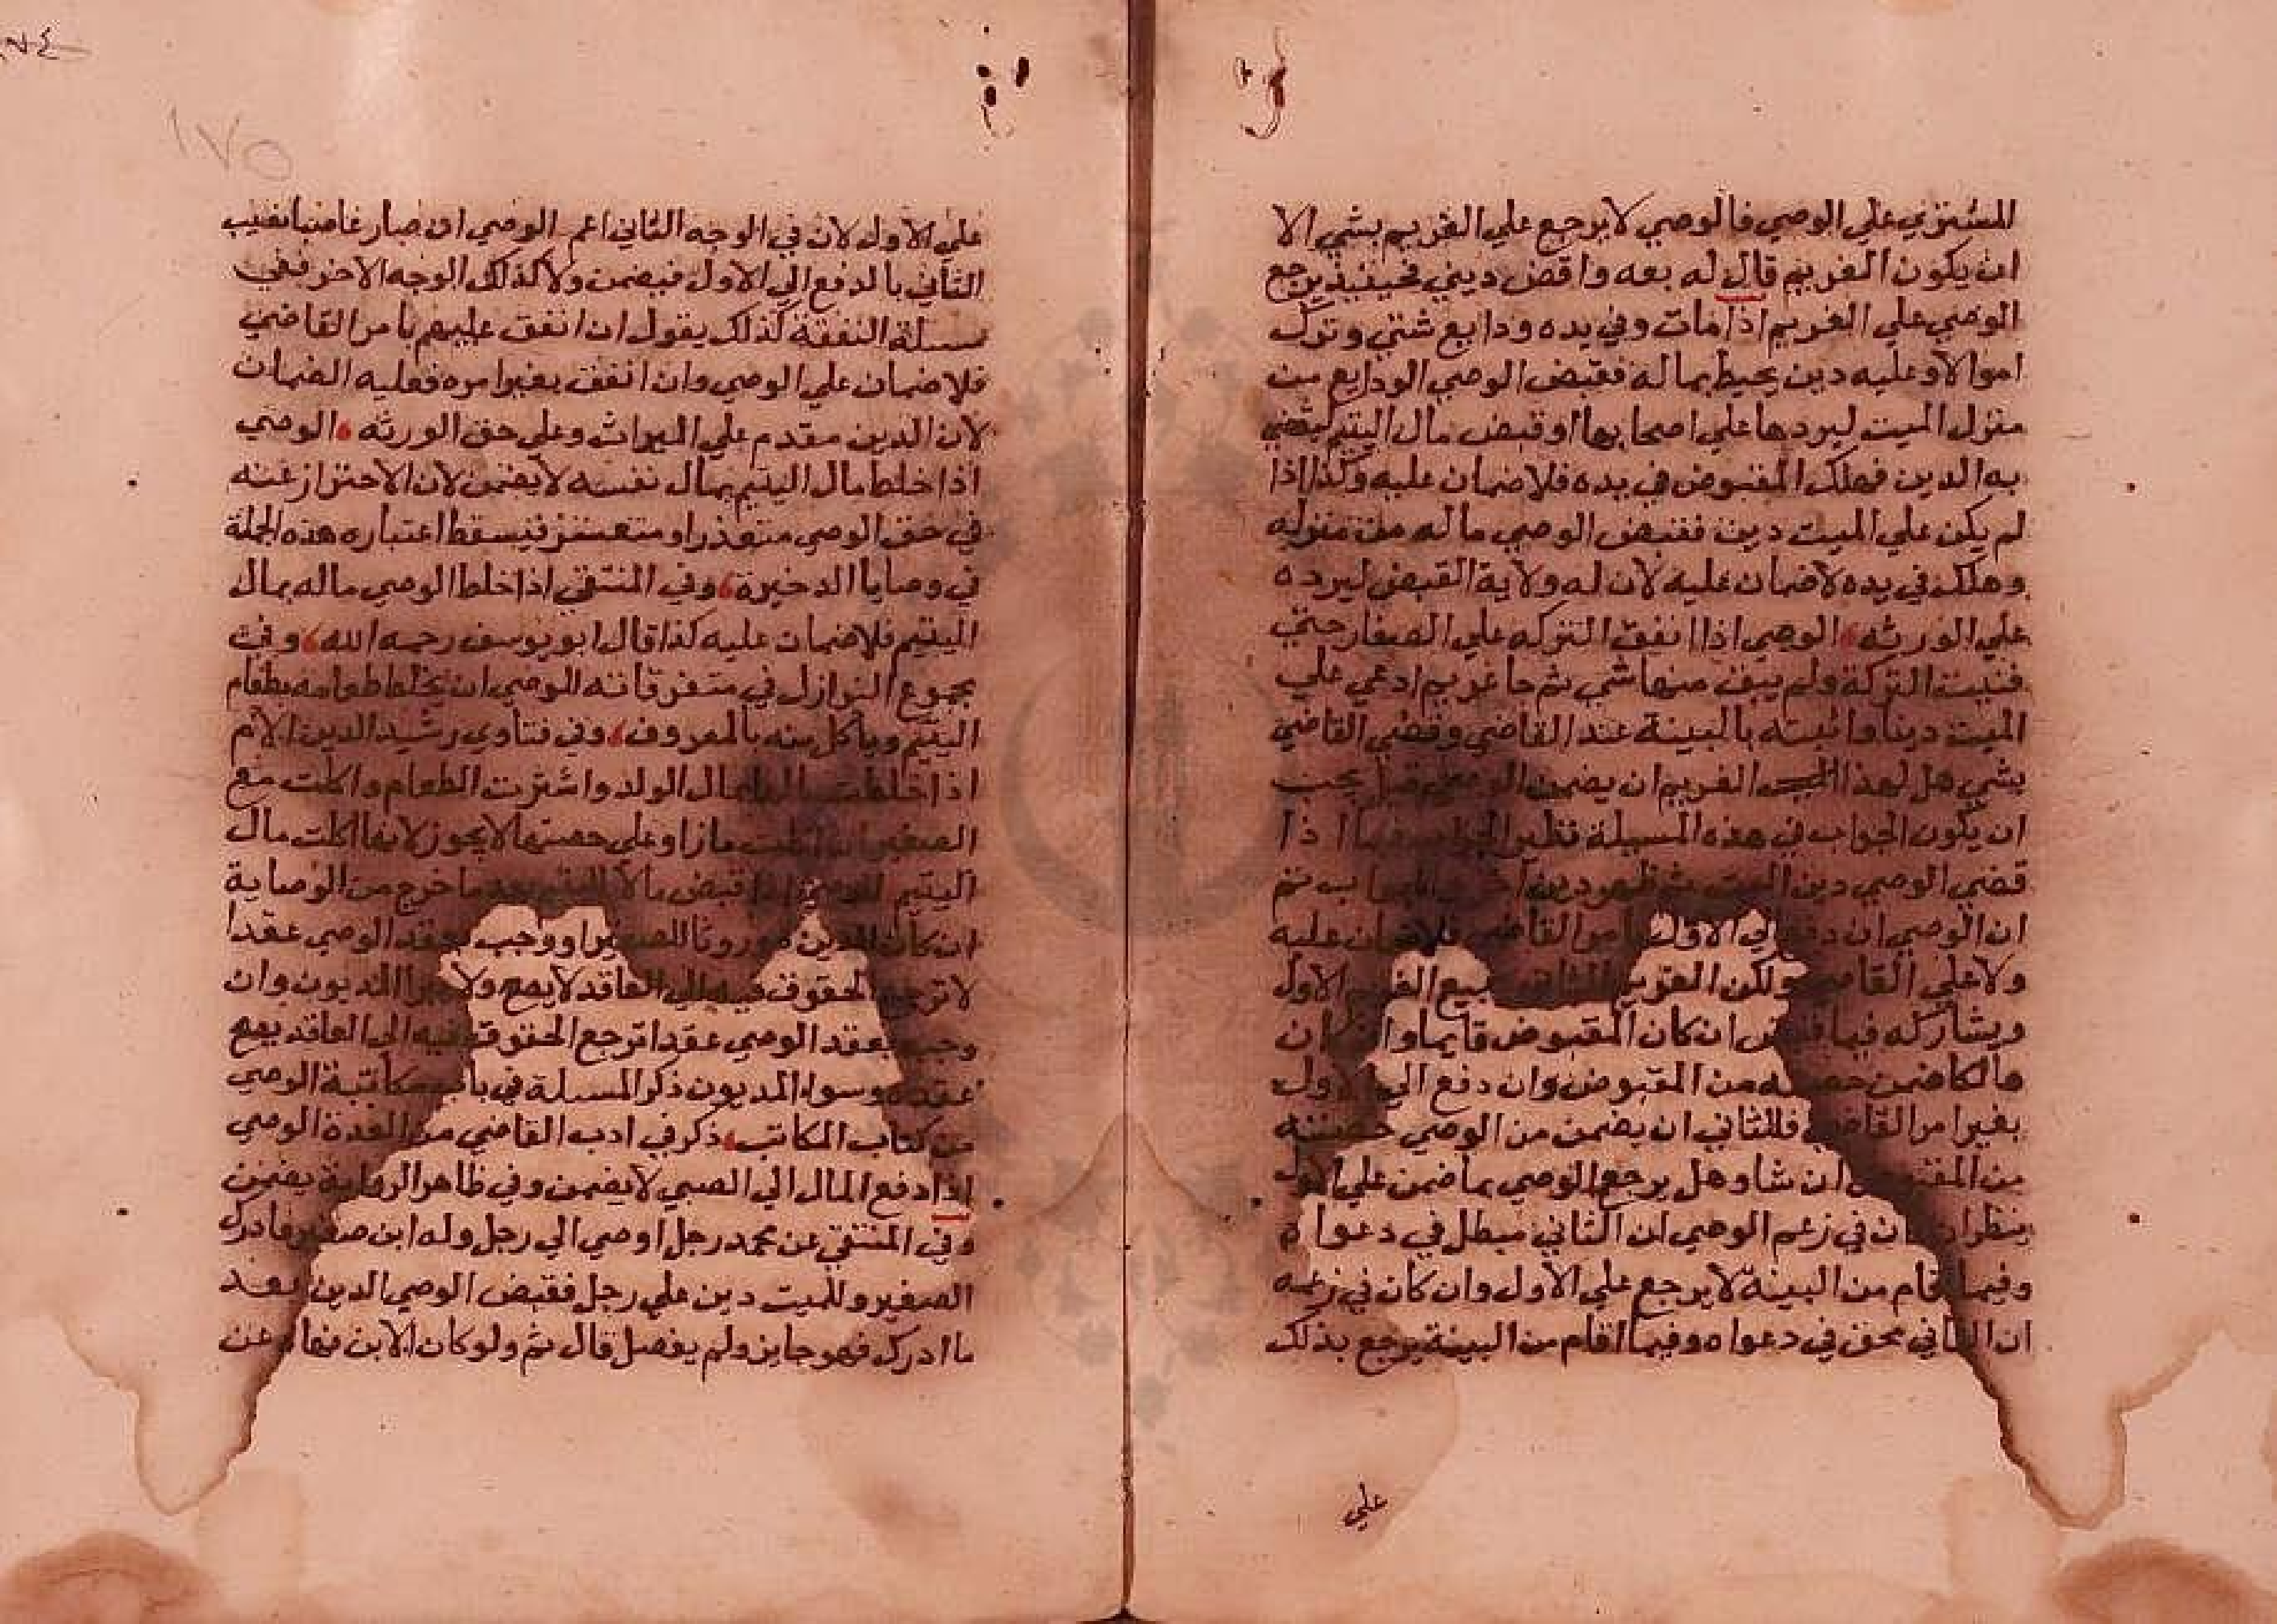 المشتري علي الوصي فالوصي لا يرجع علي الغريم بشي الا
ان يكون الغريم قال له بعه واقض ديني فحينيذ يرجع
الوصي علي الغريم اذا مات وفي يده ودايع شتي وترك
اموالا وعليه دين يحيط بماله فقبض الوصي الودايع من
منزل الميت ليردها علي اصحابها او قبض مال اليتيم ليقضي
به الدين فهلك المقبوض في يده فلا ضمان عليه وكذا اذا
لم يكن علي الميت دين فقبض الوصي ماله من منزله
وهلك في يده لا ضمان عليه لان له ولاية القبض ليرده
علي الورثه الوصي اذا انفق التركه علي الصغار حتي
فنيت التركة ولم يبق منها شي ثم جا غريم ادعي علي
الميت دينا واثبته بالبينة عند القاضي وقضي القاضي
بشي هل لهذا الغريم ان يضمن الوصي يجب
ان يكون الجواب في هذه المسيلة نظير الجواب فيما اذا
قضي الوصي دين الميت ثم ظهر دين ثم
ان الوصي ان دفع الي الاول بامر القاضي فلا ضمان عليه
ولا علي القاضي ولكن الغريم الثاني يبيع الغريم الاول
ويشاركه فيما قبض ان كان المقبوض قايما وان
هالكا ضمن حصته من المقبوض وان دفع الي الاول
بغير امر القاضي فللثاني ان يضمن من الوصي حصته
من ان شا وهل يرجع الوصي بما ضمن علي الاول
ينظر ان في زعم الوصي ان الثاني مبطل في دعواه
وفيما قام من البينة لا يرجع علي الاول وان كان في زعمه
ان الثاني محق في دعواه وفيما اقام من البينة يرجع بذلك
علي
١٧٥
علي الاول لان في الوجه الثاني الوصي ان صار غاصبا نصيب
الثاني بالدفع الي الاول فيضمن ولا كذلك الوجه الاخر ففي
مسيلة النفقة كذلك يقول ان انفق عليهم بامر القاضي
فلا ضمان علي الوصي وان انفق بغير امره فعليه الضمان
لان الدين مقدم علي الميراث وعلي حق الورثه الوصي
اذا خلط مال اليتيم بمال نفسه لا يضمن لان الاحتراز عنه
في حق الوصي متعذر او متعسر فيسقط اعتباره هذه الجملة
في وصايا الدخيرة وفي المنتقي اذا خلط الوصي ماله بمال
اليتيم فلا ضمان عليه كذا قال ابو يوسف رحمه الله وفي
مجموع النوازل في متفرقاته للوصي ان يخلط طعامه بطعام
اليتيم وياكل منه بالمعروف وفي فتاوي رشيد الدين الام
اذا خلطت مال الولد واشترت الطعام واكلت مع
الصغير ان اكلت مازاد علي حصتها لا يجوز لانها اكلت مال
اليتيم الوصي اذا قبض مال اليتيم بعد ما خرج من الوصاية
ان كان الدين موروثا للصغير او وجب بعقد الوصي عقدا
لا ترجع الحقوق فيه الي العاقد لا يصح ولا المديون وان
وجب بعقد الوصي عقدا ترجع الحقوق فيه الي العاقد يصح
وسواء المديون ذكر المسيلة في باب مكاتبة الوصي
من كتاب المكاتب ذكر في ادب القاضي من العدة الوصي
اذا دفع المال الي الصبي لا يضمن وفي ظاهر الرواية يضمن
وفي المنتقي عن محمد رجل اوصي الي رجل وله ابن صغير فادرك
الصغير وللميت دين علي رجل فقبض الوصي الدين بعد
ما ادرك فهو جايز ولم يفصل قال ثم ولو كان الابن نهاه عن